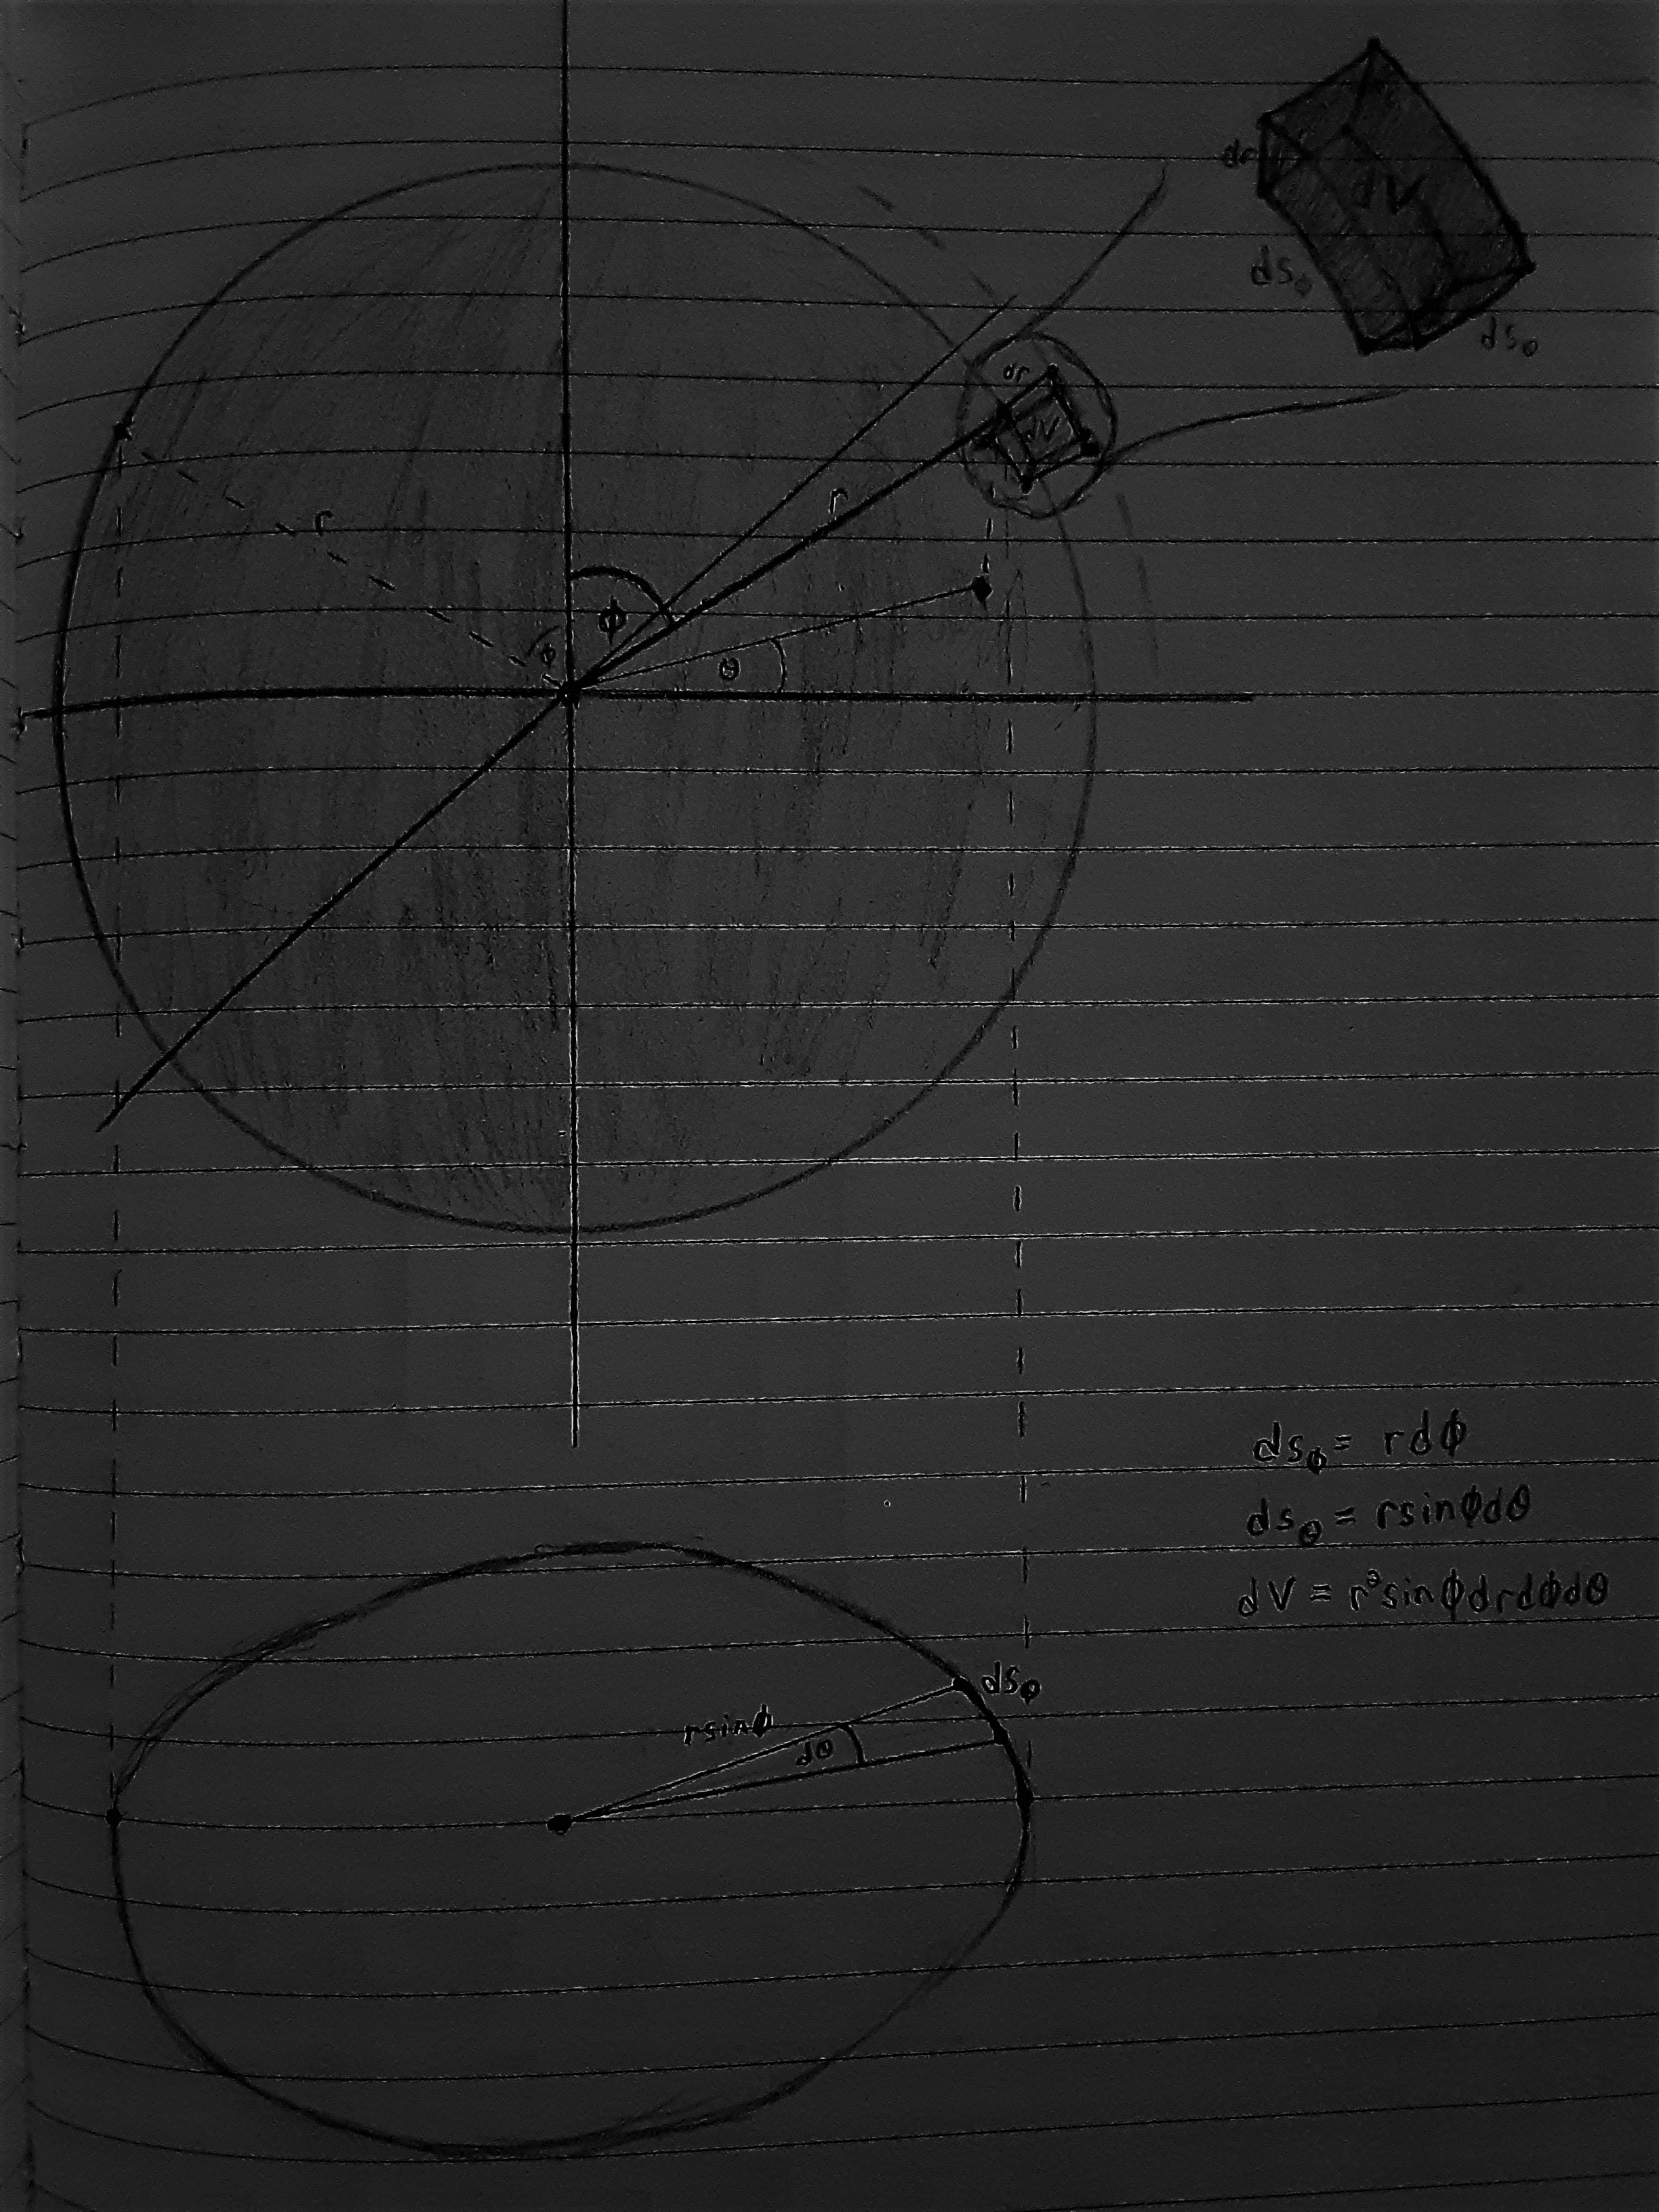 dr
dV
ds_ϕ
ds_θ
dr
dV
r
r
ϕ
ϕ
θ
ds_ϕ = rdϕ
ds_θ = rsinϕdθ
dV = r²sinϕdrdϕdθ
ds_θ
rsinϕ
dθ